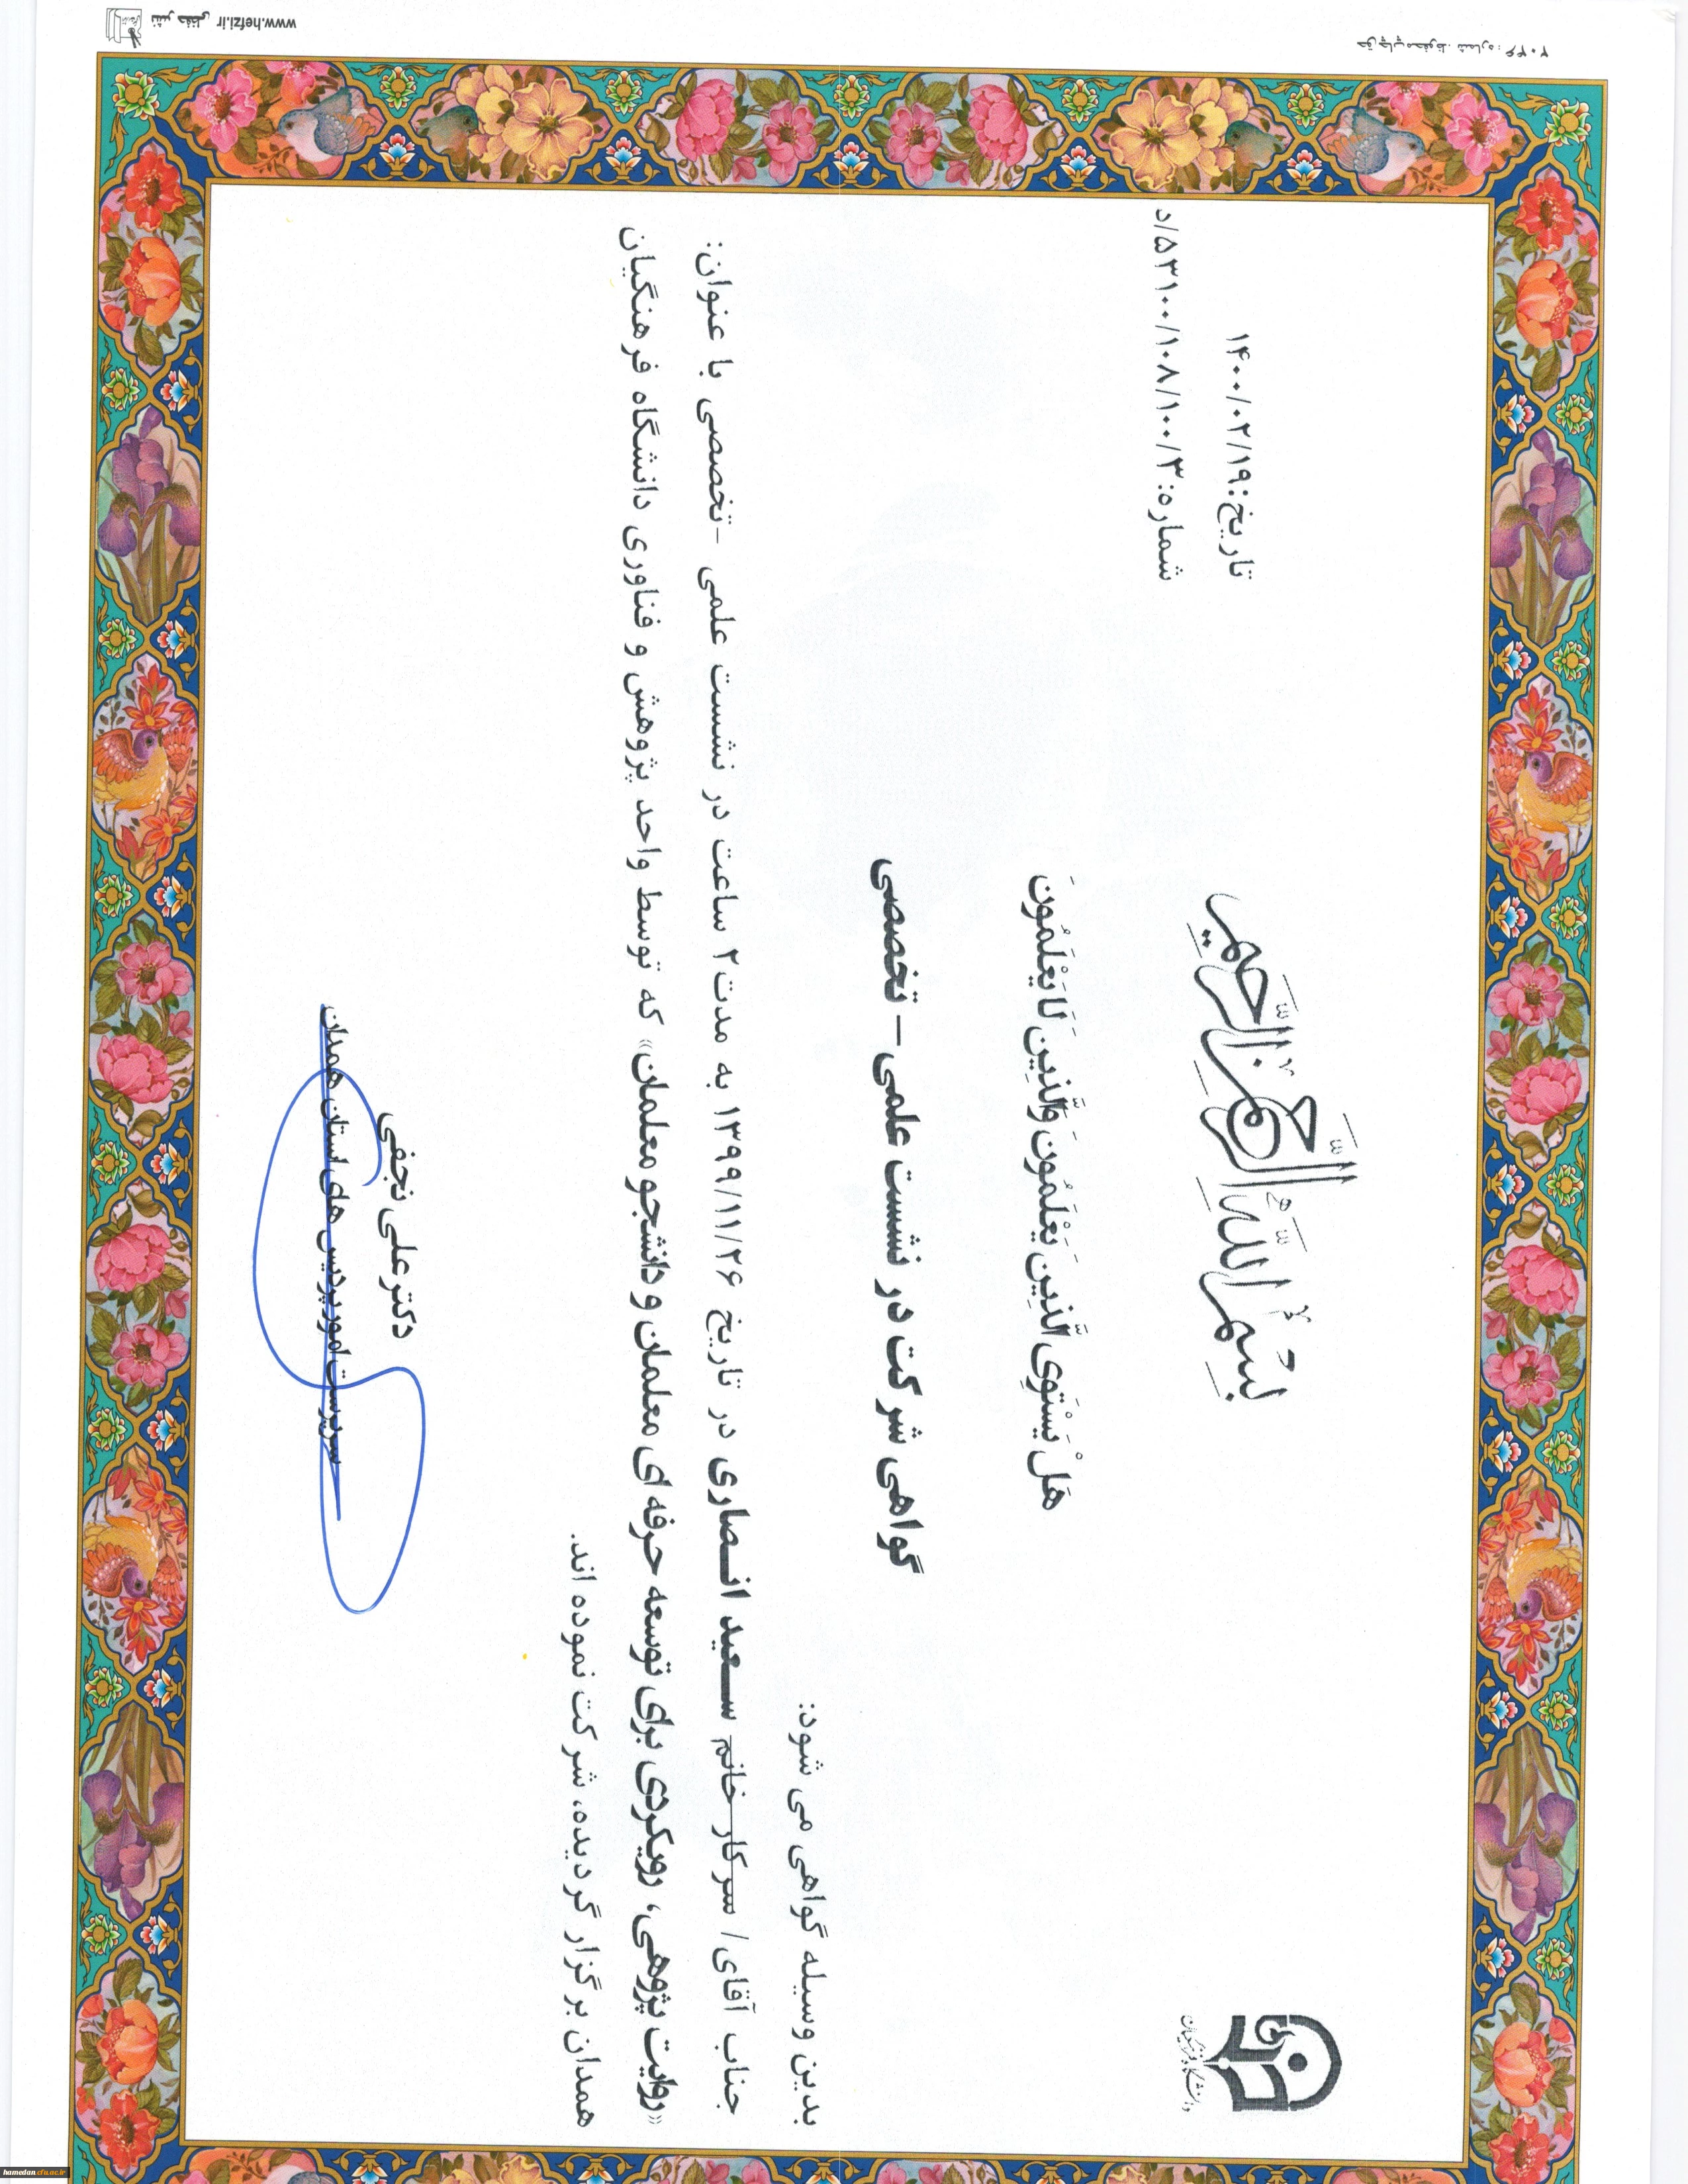 بِسْمِ اللَّهِ الرَّحْمَٰنِ الرَّحِيمِ
تاریخ: ۱۴۰۰/۰۲/۱۹
شماره: ۵۳۱۰۰/۱۰۸/۱۰۰/۳/د
دانشگاه فرهنگیان
هَلْ يَسْتَوِي الَّذِينَ يَعْلَمُونَ وَالَّذِينَ لَا يَعْلَمُونَ
گواهی شرکت در نشست علمی – تخصصی
بدین وسیله گواهی می شود:
جناب آقای/ سرکار خانم سعید انصاری در تاریخ ۱۳۹۹/۱۱/۲۶ به مدت ۲ ساعت در نشست علمی -تخصصی با عنوان:
«روایت پژوهی، رویکردی برای توسعه حرفه ای معلمان و دانشجو معلمان» که توسط واحد پژوهش و فناوری دانشگاه فرهنگیان
همدان برگزار گردیده، شرکت نموده اند.
دکتر علی نجفی
سرپرست امور پردیس های استان همدان
www.hefzi.ir
hamedan.cfu.ac.ir